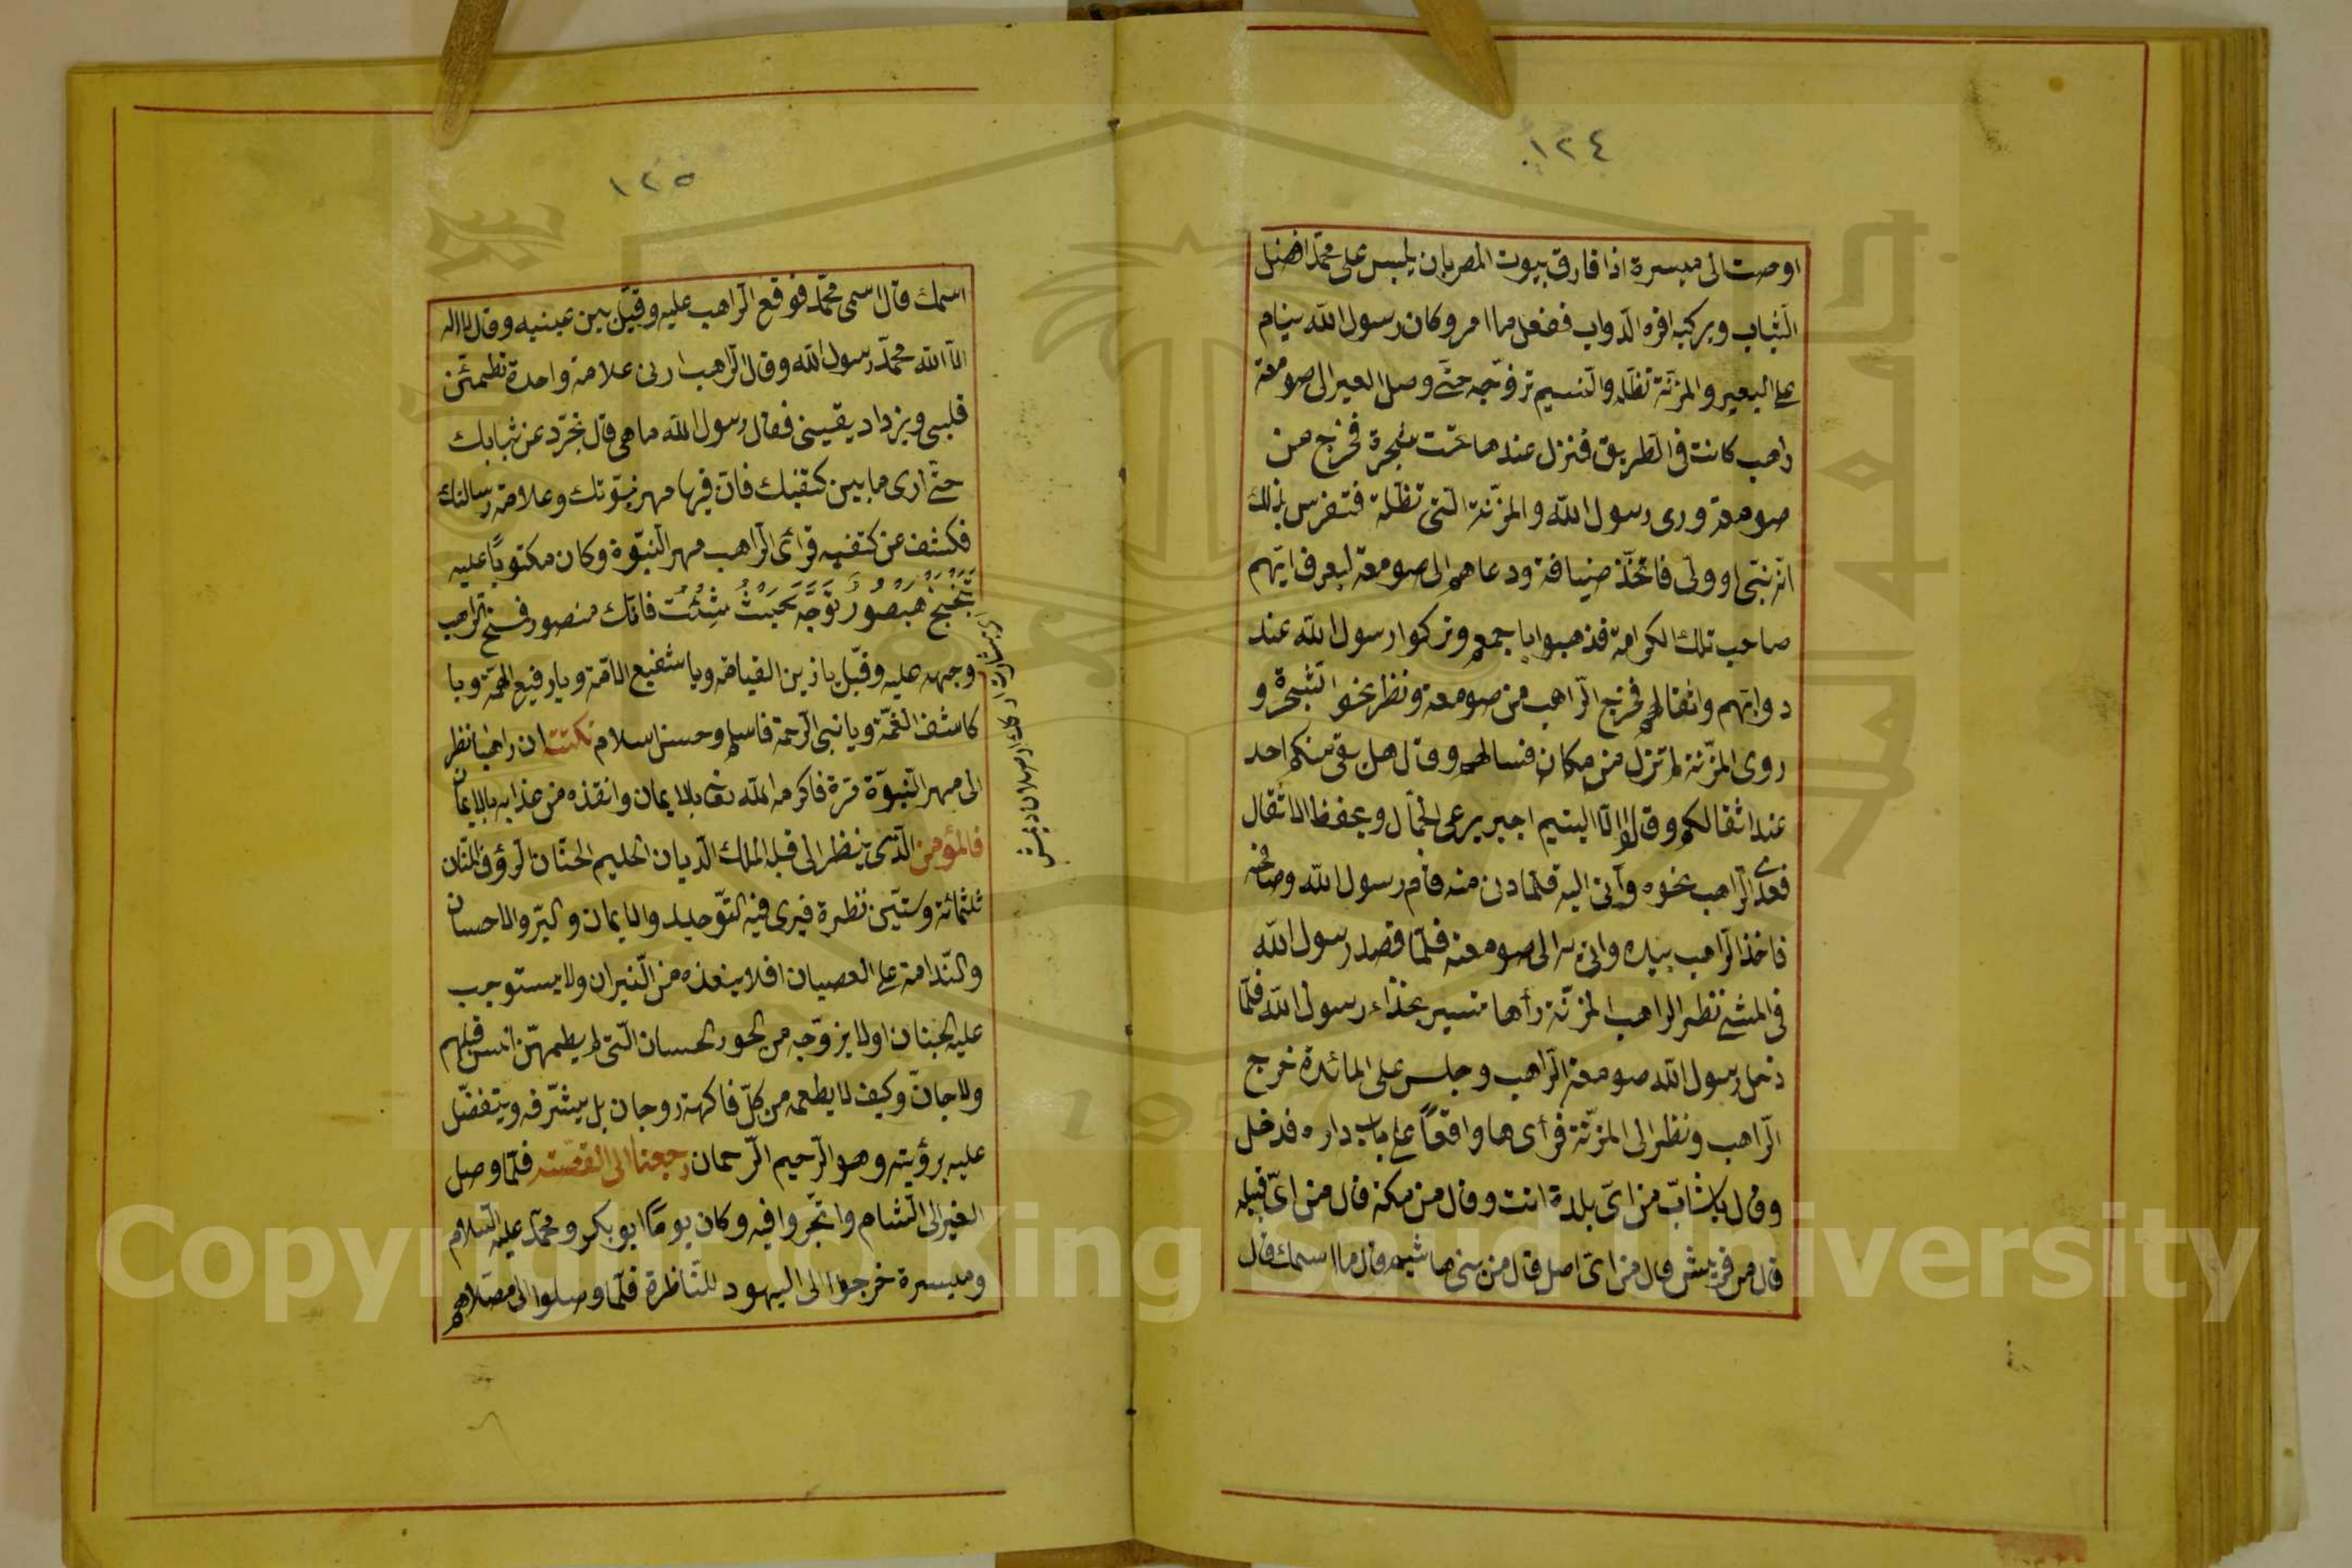 ١٢٤
اوصت الى ميسرة اذا فارق بيوت المصر بان يلبس على محمّد افضل
الثياب ويركبه افره الدواب ففعل ما امر وكان رسول الله ينام
على البعير والمزنة تظلّه والنسيم تروّحه حتّى وصل العير الى صومعة
راهب كانت فى الطريق فنزل عندها تحت شجرة فخرج من
صومعة ورى رسول الله والمزنة الّتى تظلّه فتفرس بذلك
انّه نبّى او ولّى فاتخّذ ضيافة ودعاهم الى صومعة ليعرف ايّهم
صاحب تلك الكرامة فذهبوا باجمعهم وتركوا رسول الله عند
دوابّهم واثقالهم فخرج الرّاهب من صومعة ونظر نحو الشّجرة و
روى المزّنة لم تزل من مكان فسالهم وقال هل بقى منكم احد
عند اثقالكم وقالوا الّا اليتيم اجير يرعى الجمال ويحفظ الاثقال
فعدى الرّاهب نحوه وآتى اليه فلمّا دنى منه قام رسول الله وصافحه
فاخذ الرّاهب بيده واتى به الى صومعته فلمّا قصد رسول الله
فى المشى نظر الراهب المزنّة رأها تسير بحذاء رسول الله فلمّا
دخل رسول الله صومعة الرّاهب وجلس على المائدة خرج
الرّاهب ونظر الى المزنّة فرأى ها واقفاً على باب داره فدخل
وقال يا شابّ من اىّ بلدة انت وقال من مكة قال من اىّ قبيلة
قال من قريش قال من اىّ اصل قال من بنى هاشم قال ما اسمك قال
١٢٥
اسمك قال اسمى محمّد فوقع الرّاهب عليه وقبّل بين عينيه وقال لا اله
الّا الله محمّد رسول الله وقال الرّاهب ارنى علامة واحدة تطمئنّ
قلبى ويزداد يقينى فقال رسول الله ما هى قال تجرّد عن ثيابك
حتّى ارى ما بين كتفيك فانّ فيها مهر نبوّتك وعلامة رسالتك
فكشف عن كتفيه فرأى الرّاهب مهر النبّوة وكان مكتوباً عليه
توجّه حيث شئت فانّك منصور الرّاهب
وجهه عليه وقبّل يا زين القيامة ويا شفيع الامّة ويا رفيع الهمّة ويا
كاشف الغمّة ويا نبى الرّحمة فاسلم وحسن اسلام نكتت ان راهبا نظر
الى مهر النّبوّة مرّة فاكرمه الله تعا بالايمان وانقذه من عذابه بالايمان
فالمؤمن الّذى ينظر الى قبله الملك الدّيان الحليم الحنّان الرؤف المنّان
ثلثمائة وستّين نظرة فيرى فيه التّوحيد والايمان والبرّ والاحسان
والنّدامة على العصيان افلا ينقذه من النّيران ولا يستوجب
عليه الجنان اولا يزوّجه من الحور الحسان الّتى لم يطمهنّ انس قبلهم
ولا جانّ وكيف لا يطعمه من كلّ فاكهة زوجان بل يشرّفه ويتفضّل
عليه برؤيته وهو الرّحيم الرّحمان رجعنا الى القصّة فلمّا وصل
العير الى الشام واتّجروا فيه وكان يوماً ابو بكر ومحمّد عليه السّلام
وميسرة خرجوا الى اليهود للنّاظرة فلمّا وصلوا الى مصلّاهم
Copyright © King Saud University
1957